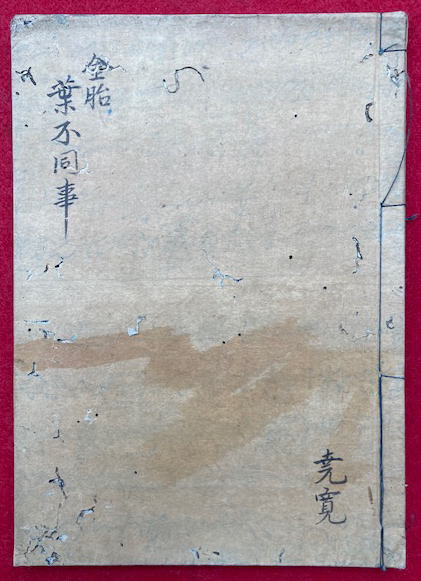 金胎
葉不同事
堯寛